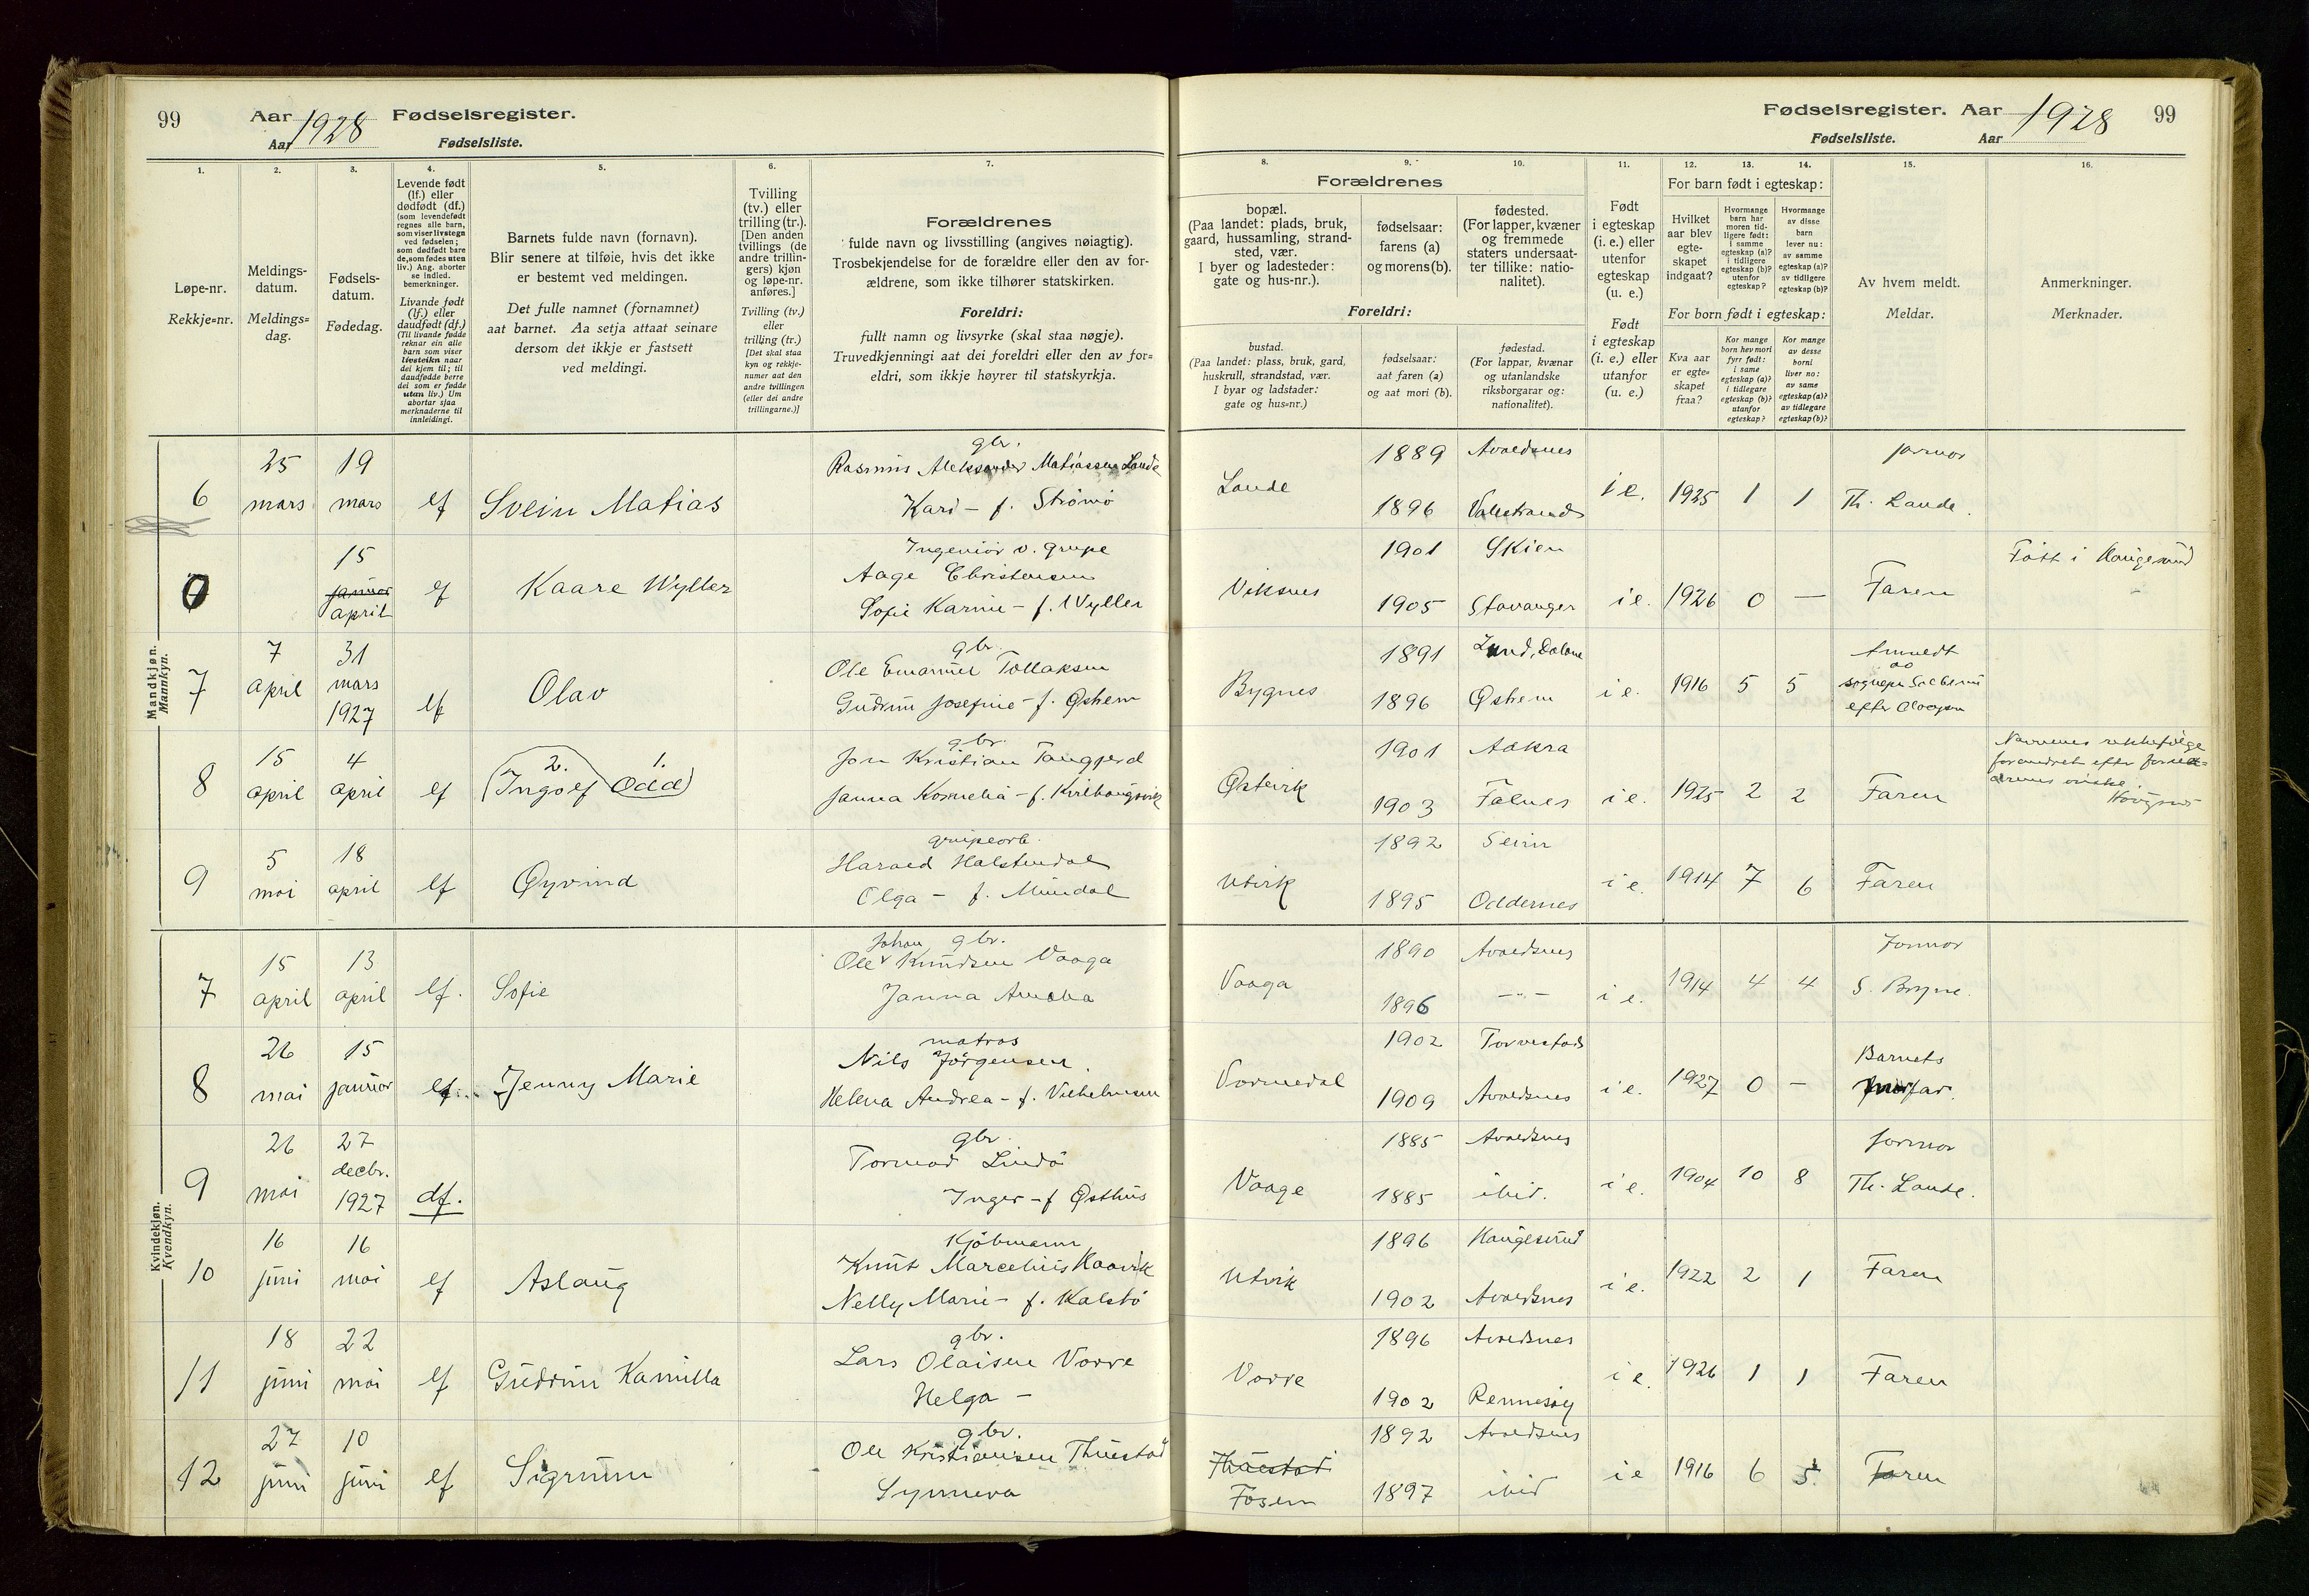 99 Aar 1928 Fødselsregister.
Aar Fødselsliste.
Fødselsregister. Aar 1928 99
Fødselsliste. Aar
1. 2. 3. 4. 5. 6. 7.
8. 9. 10. 11. 12. 13. 14. 15. 16.
Løpe-nr.
Rekkje=nr.
Meldings-
datum.
Meldings=
dag.
Fødsels-
datum.
Fødedag.
Levende født
(lf.) eller
dødfødt (df.)
(som levendefødt
regnes alle barn,
som viser livstegn
ved fødselen;
som dødfødt bare
de, som fødes uten
liv.) Ang. aborter
se indled.
bemerkninger.
Livande født
(lf.) eller
daudfødt (df.)
(Til livande fødde
reknar ein alle
barn som viser
livsteikn naar
dei kjem til; til
daudfødde berre
dei som er fødde
utan liv.) Um
abortar sjaa
merknaderne til
innleidingi.
Barnets fulde navn (fornavn).
Blir senere at tilføie, hvis det ikke
er bestemt ved meldingen.
Det fulle namnet (fornamnet)
aat barnet. Aa setja attaat seinare
dersom det ikkje er fastsett
ved meldingi.
Tvilling
(tv.) eller
trilling (tr.).
[Den anden
tvillings (de
andre trillin-
gers) kjøn
og løpe-nr.
anføres.]
Tvilling (tv.)
eller
trilling (tr.)
[Det skal staa
kyn og rekkje-
numer aat den
andre tvillingen
(eller dei andre
trillingarne.)]
Forældrenes
fulde navn og livsstilling (angives nøiagtig).
Trosbekjendelse for de forældre eller den av for-
ældrene, som ikke tilhører statskirken.
Foreldri:
fullt namn og livsyrke (skal staa nøgje).
Truvedkjenningi aat dei foreldri eller den av for=
eldri, som ikkje høyrer til statskyrkja.
Forældrenes
bopæl.
(Paa landet: plads, bruk,
gaard, hussamling, strand-
sted, vær.
I byer og ladesteder:
gate og hus-nr.).
fødselsaar:
farens (a)
og morens (b).
fødested.
(For lapper, kvæner
og fremmede
staters undersaat-
ter tillike: natio-
nalitet).
Foreldri:
bustad.
(Paa landet: plass, bruk, gard,
huskrull, strandstad, vær.
I byar og ladstader:
gate og hus=nr.)
fødselsaar:
aat faren (a)
og aat mori (b).
fødestad.
(For lappar, kvænar
og utanlandske
riksborgarar og:
nationalitet).
Født
i egteskap
(i. e.) eller
utenfor
egteskap
(u. e.)
Født
i egteskap
(i. e.) eller
utanfor
(u. e.)
For barn født i egteskap:
Hvilket
aar blev
egte-
skapet
indgaat?
Hvormange
barn har
moren tid-
ligere født:
i samme
egteskap (a)?
i tidligere
egteskap (b)?
utenfor
egteskap?
Hvormange
av disse
barn
lever nu:
av samme
egteskap (a)?
av tidligere
egteskap (b)?
For born født i egteskap:
Kva aar
er egte=
skapet
fraa?
Kor mange
born hev mori
fyrr født:
i same
egteskap (a)?
i tidlegare
egteskap (b)?
utanfor
egteskap?
Kor mange
av desse
borni
liver no:
av same
egteskap (a)?
av tidlegare
egteskap (b)?
Av hvem meldt.
Meldar.
Anmerkninger.
Merknader.
Mandkjøn.
Mannkyn.
6 25 mars 19 mars lf Svein Matias
gbr.
Rasmus Aleksander Matiassen Lande
Kari - f. Strømø
Lande 1889 Avaldsnes
1896 i e. 1925 1 1 jormor
Th. Lande.
0 15 januar april lf Kaare Wyller
Ingeniør v. grupe
Aage Christensen
Sofie Karine - f. Wyller
Viksnes 1901 Skien
1905 Stavanger i e. 1926 0 — Faren
Født i Haugesund
7 7 april 31 mars 1927 lf Olav
gbr.
Ole Emanuel Tollaksen
Gudrun Josefine - f. Øshem
Bygnes 1891 Lund, Dalane
1896 Øshem i e. 1916 5 5
8 15 april 4 april lf 2. Ingolf 1. Odd
gbr.
Jon Kristian Tangjerd
Janna Kornelia - f.
Østvik 1901 Aakra
1903 Falnes i e. 1925 2 2 Faren
Navnenes rekkefølge
forandret efter foræl-
drenes ønske.
9 5 mai 18 april lf Øyvind
grupearb.
Harald Halstendal
Olga - f. Mundal
Utvik 1892 Seim
1895 Oddernes i e. 1914 7 6 Faren
Kvindekjøn.
Kvendkyn.
7 15 april 13 april lf. Sofie
Johan gbr.
Ole Knudsen Vaaga
Janna Amalia
Vaaga 1890 Avaldsnes
1896 -"- i e. 1914 4 4 Jormor
S. Bryne.
8 26 mai 15 januar lf. Jenny Marie
matros
Nils Jørgensen
Helena Andrea - f. Vilhelmsen
Vormedal 1902 Torvestad
1909 Avaldsnes i e. 1927 0 - Barnets
morfar.
9 26 mai 27 decbr. 1927 df.
gbr.
Tormod Lindø
Inger - f Østhus
Vaage 1885 Avaldsnes
1885 ibid. i e. 1904 10 8 jormor
Th. Lande.
10 16 juni 16 mai lf Aslaug
Kjøbmann
Knut Marcelius Haavik
Nelly Marie - f. Kalstø
Utvik 1896 Haugesund
1902 Avaldsnes i e. 1922 2 1 Faren
11 18 juni 22 mai lf Gudrun Kamilla
gbr.
Lars Olaisen Vorre
Helga -
Vorre 1896 Avaldsnes
1902 Rennesøy i e. 1926 1 1 Faren
12 27 juni 10 juni lf Sigrunn
gbr.
Ole Kristiansen Thuestad
Synneva
Thuestad
Fosen 1892 Avaldsnes
1897 ibid i e 1916 6 5 Faren